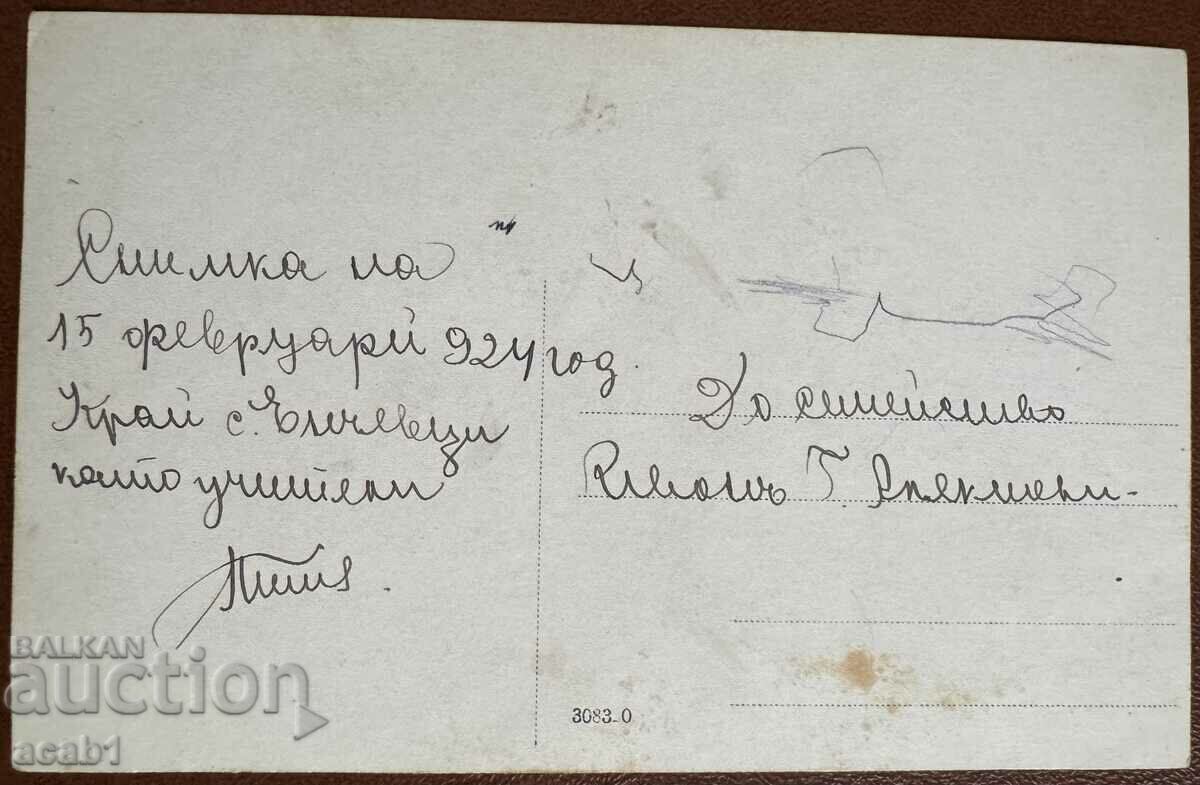 Снимка на
15 февруари 924 год.
Край с. Енчевци
като учители
До семейство
Г.
3083-0
BALKAN
auction
acab1